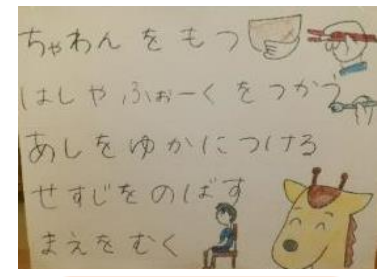 ちゃわん を も つ
はし や ふぉーく を つかう
あし を ゆか に つける
せすじ を のばす
まえ を むく